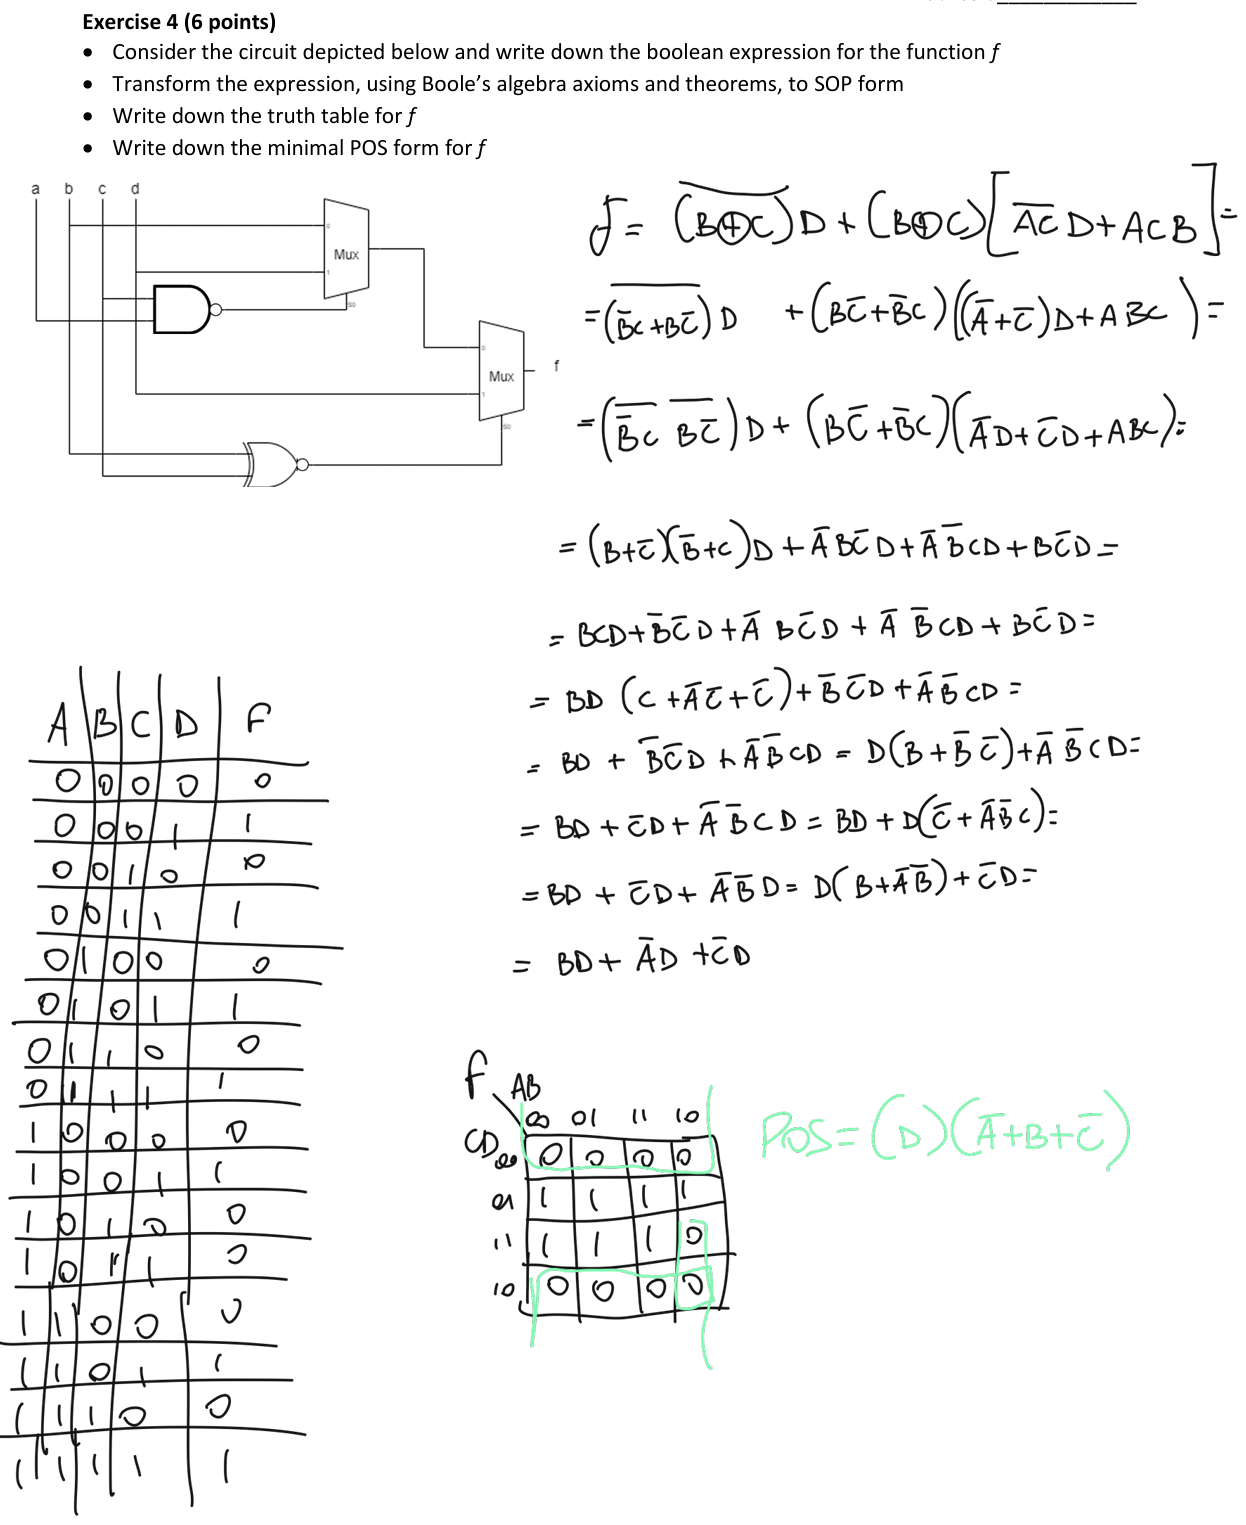 Exercise 4 (6 points)
• Consider the circuit depicted below and write down the boolean expression for the function f
• Transform the expression, using Boole's algebra axioms and theorems, to SOP form
• Write down the truth table for f
• Write down the minimal POS form for f
a b c d
0
Mux
1
S0
0
Mux
1
S0
f
f = (B⊕C)̅ D + (B⊕C)[A̅C̅ D + ACB] =
= (B̅C + BC̅)̅ D + (BC̅ + B̅C)((A̅ + C̅)D + ABC) =
= (B̅C̅ ̅B̅C̅̅)D + (BC̅ + B̅C)(A̅D + C̅D + ABC) =
= (B + C̅)(B̅ + C)D + A̅BC̅D + A̅B̅CD + BC̅D =
= BCD + B̅C̅D + A̅BC̅D + A̅B̅CD + BC̅D =
= BD(C + A̅C̅ + C̅) + B̅C̅D + A̅B̅CD =
= BD + B̅C̅D + A̅B̅CD = D(B + B̅C̅) + A̅B̅CD =
= BD + C̅D + A̅B̅CD = BD + D(C̅ + A̅B̅C) =
= BD + C̅D + A̅B̅D = D(B + A̅B̅) + C̅D =
= BD + A̅D + C̅D
A B C D F
0 0 0 0 0
0 0 0 1 1
0 0 1 0 0
0 0 1 1 1
0 1 0 0 0
0 1 0 1 1
0 1 1 0 0
0 1 1 1 1
1 0 0 0 0
1 0 0 1 1
1 0 1 0 0
1 0 1 1 0
1 1 0 0 0
1 1 0 1 1
1 1 1 0 0
1 1 1 1 1
f AB
CD 00 01 11 10
00 0 0 0 0
01 1 1 1 1
11 1 1 1 0
10 0 0 0 0
POS = (D)(A̅ + B + C̅)